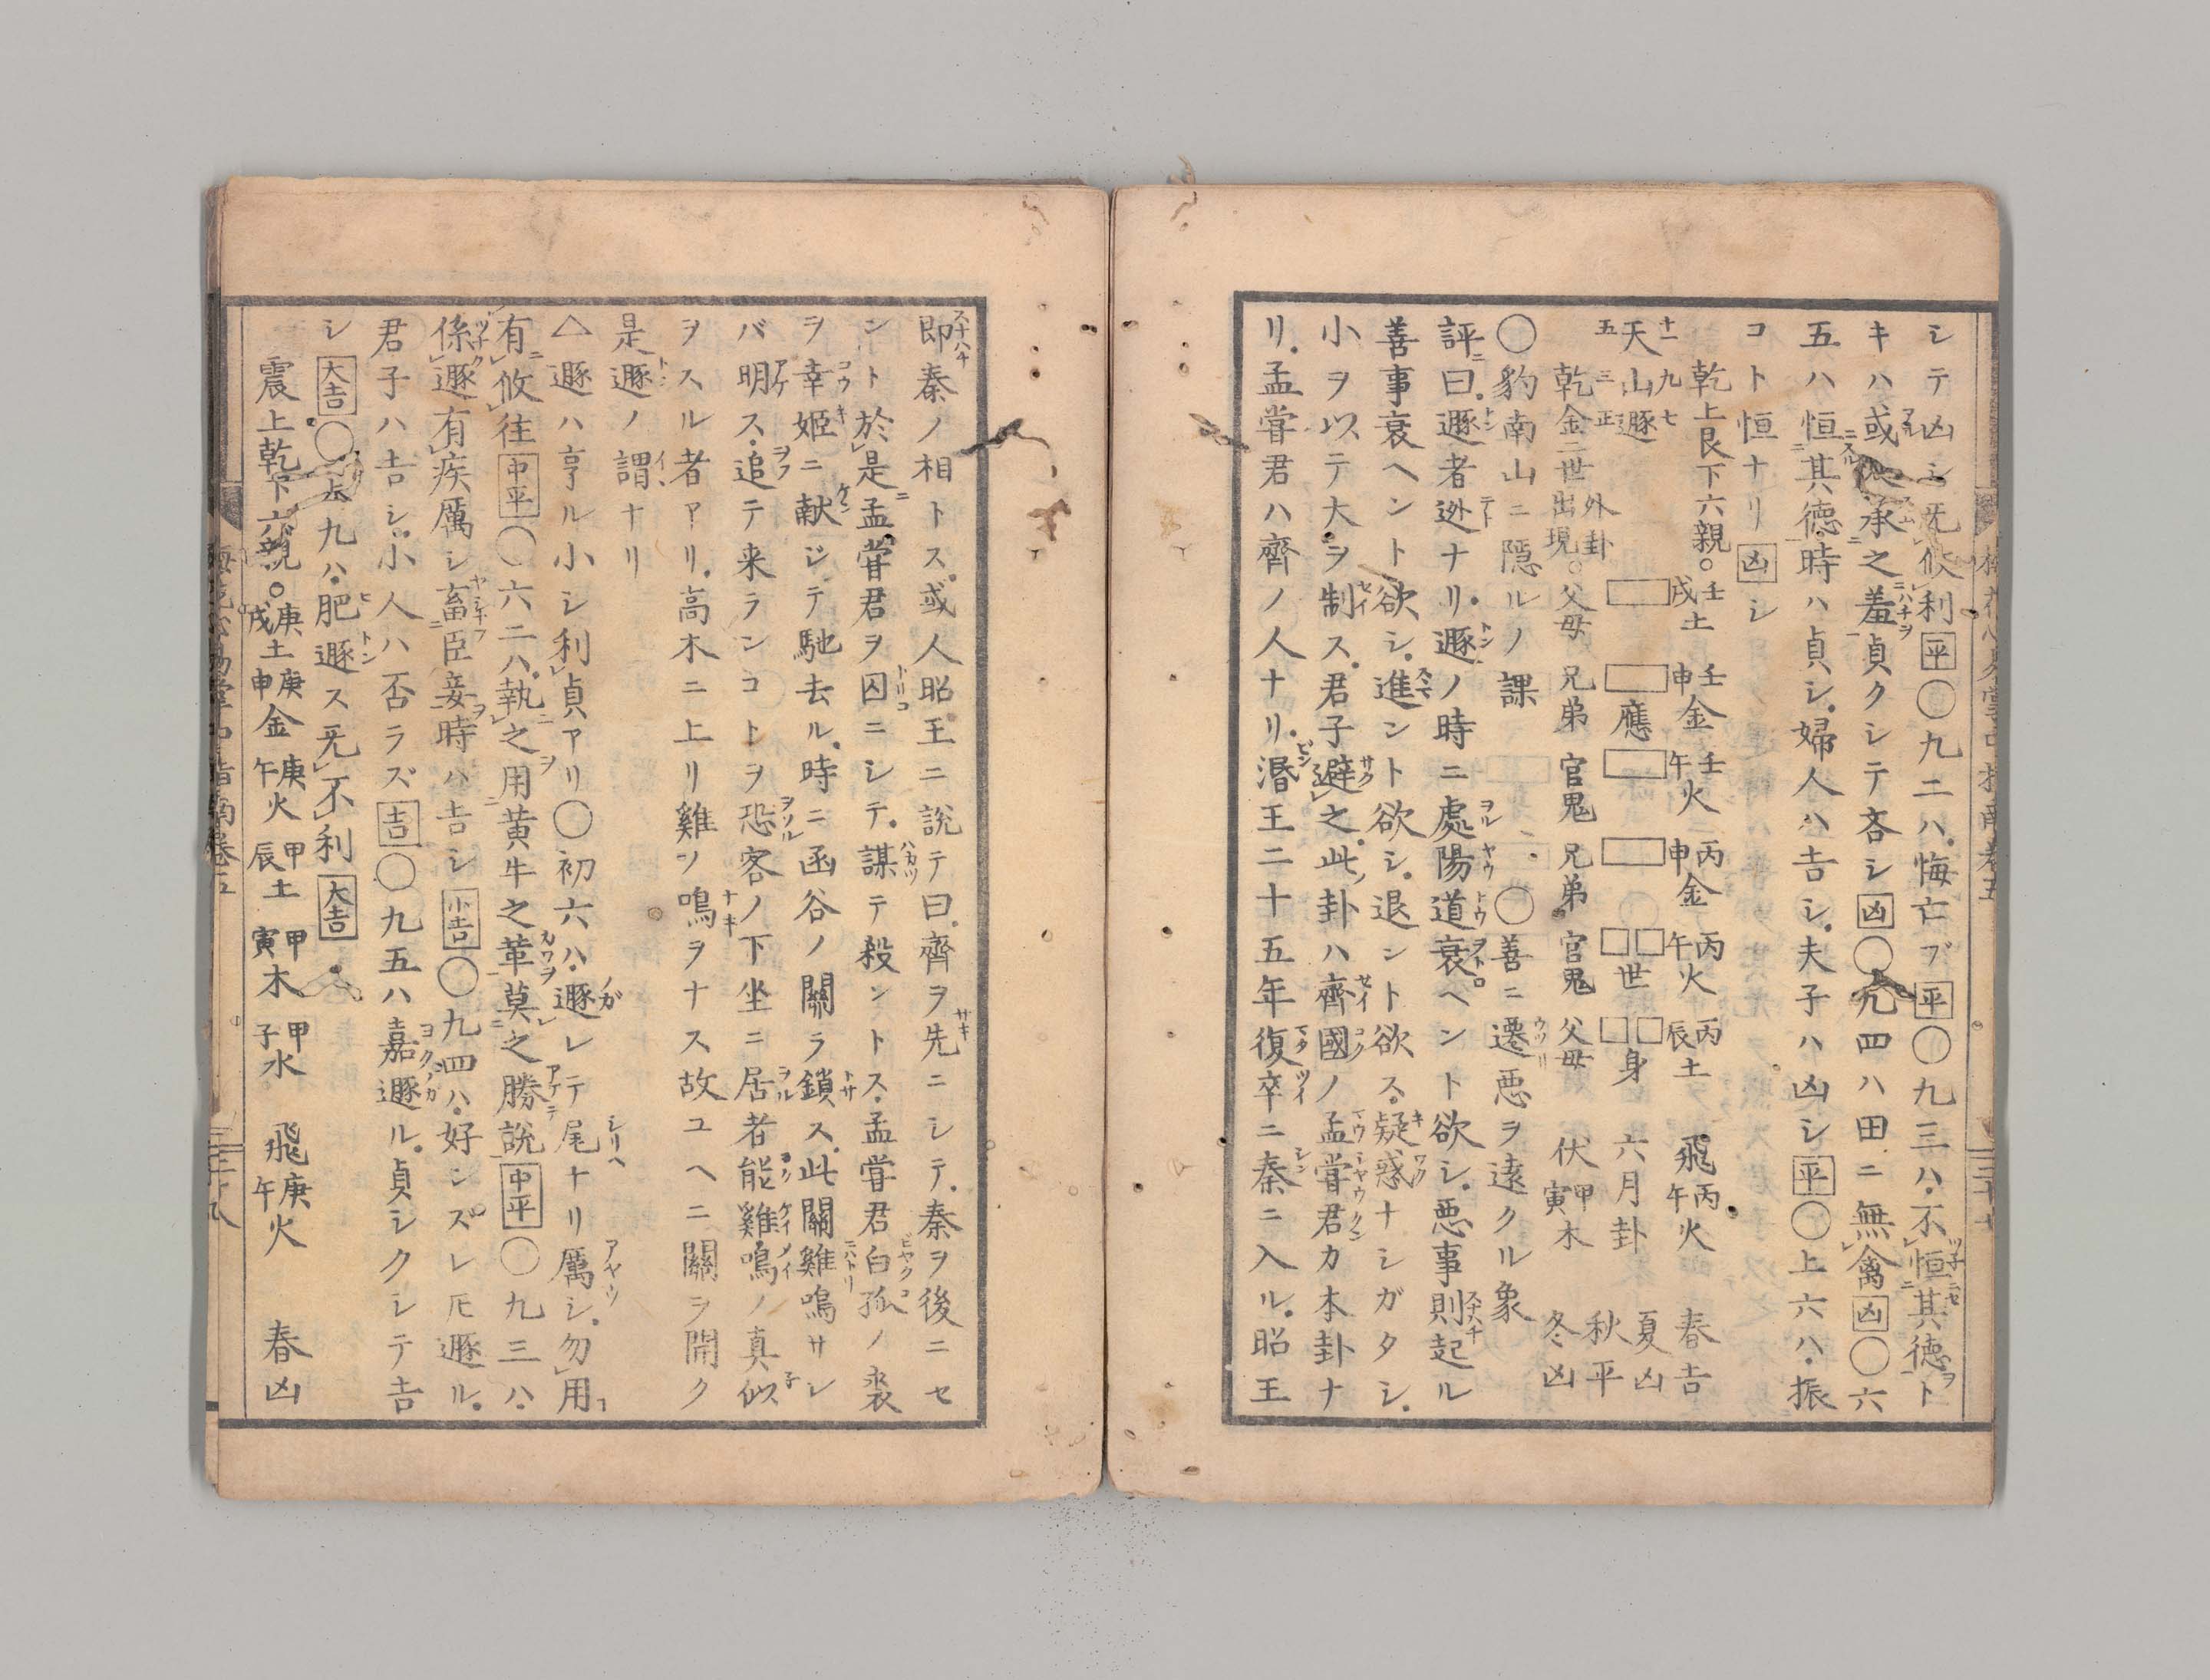 シテ凶シ无攸利平〇九二ハ悔亡ブ平〇九三ハ不恒其徳ト
キハ或承之羞貞クシテ吝シ凶〇九四ハ田ニ無禽凶〇六
五ハ恒其徳時ハ貞シ婦人ハ吉シ夫子ハ凶シ平〇上六ハ振
コト恒ナリ凶シ
乾上艮下六親。壬戌土 壬申金 壬午火 丙申金 丙午火 丙辰土 飛丙午火 春吉
十一九七
天山遯 應 世 身 六月卦 夏凶
五三正
外卦 秋平
乾金二世出現。父母 兄弟 官鬼 兄弟 官鬼 父母 伏甲寅木 冬凶
〇豹南山ニ隠ルノ課 〇善ニ遷悪ヲ遠クル象
評曰遯者迯ナリ遯ノ時ニ處陽道衰ヘント欲シ悪事則起ル
善事衰ヘント欲シ進ント欲シ退ント欲ス疑惑ナシガタシ
小ヲ以テ大ヲ制ス君子避之此卦ハ齊國ノ孟甞君カ本卦ナ
リ孟甞君ハ齊ノ人ナリ湣王二十五年復卒ニ秦ニ入ル昭王
即秦ノ相トス或人昭王ニ説テ曰齊ヲ先ニシテ秦ヲ後ニセ
ント於是孟甞君ヲ囚ニシテ謀テ殺ントス孟甞君白狐ノ裘
ヲ幸姫ニ献ジテ馳去ル時ニ函谷ノ關ラ鎖ス此關雞鳴サレ
バ明ス追テ来ランコトヲ恐客ノ下坐ニ居者能雞鳴ノ真似
ヲスル者アリ高木ニ上リ雞ノ鳴ヲナス故ユヘニ關ヲ開ク
是遯ノ謂ナリ
△遯ハ亨ル小シ利貞アリ〇初六ハ遯レテ尾ナリ厲シ勿用
有攸往中平〇六二ハ執之用黄牛之革莫之勝説中平〇九三ハ
係遯有疾厲シ畜臣妾時ハ吉シ小吉〇九四ハ好ンズレ𪜈遯ル
君子ハ吉シ小人ハ否ラズ吉〇九五ハ嘉遯ル貞シクシテ吉
シ大吉〇上九ハ肥遯ス无不利大吉
震上乾下六親。庚戌土 庚申金 庚午火 甲辰土 甲寅木 甲子水 飛庚午火 春凶